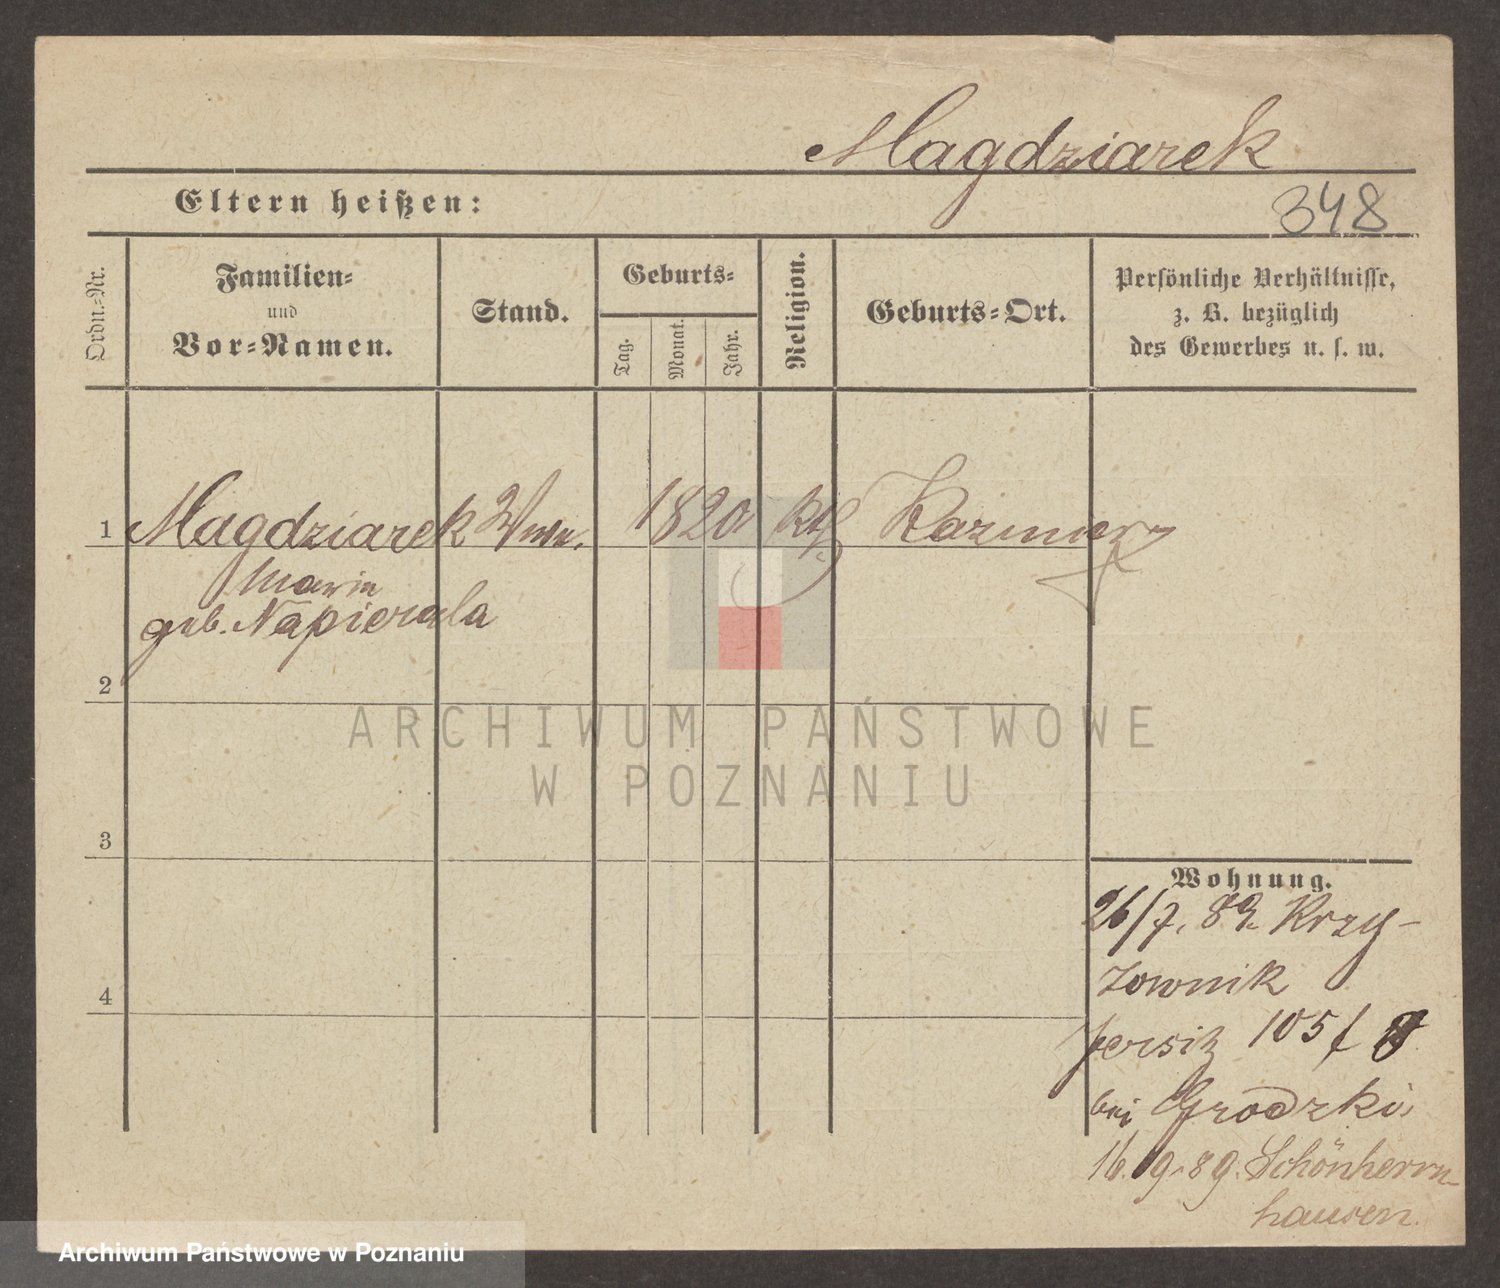 Magdziarek
Eltern heißen:
348
Ordn.=Nr.
Familien=
und
Vor=Namen.
Stand.
Geburts=
Tag.
Monat.
Jahr.
Religion.
Geburts=Ort.
Persönliche Verhältnisse,
z. B. bezüglich
des Gewerbes u. s. w.
1 Magdziarek Wwe. 1820 Kth. Kazmierz
Maria
geb. Napierala
2
ARCHIWUM PAŃSTWOWE
W POZNANIU
3
Wohnung.
26/7. 89. Krzy-
4
zownik
Jersitz 105f
bei Grodzki
16. 9. 89. Schönherrn-
hausen.
Archiwum Państwowe w Poznaniu